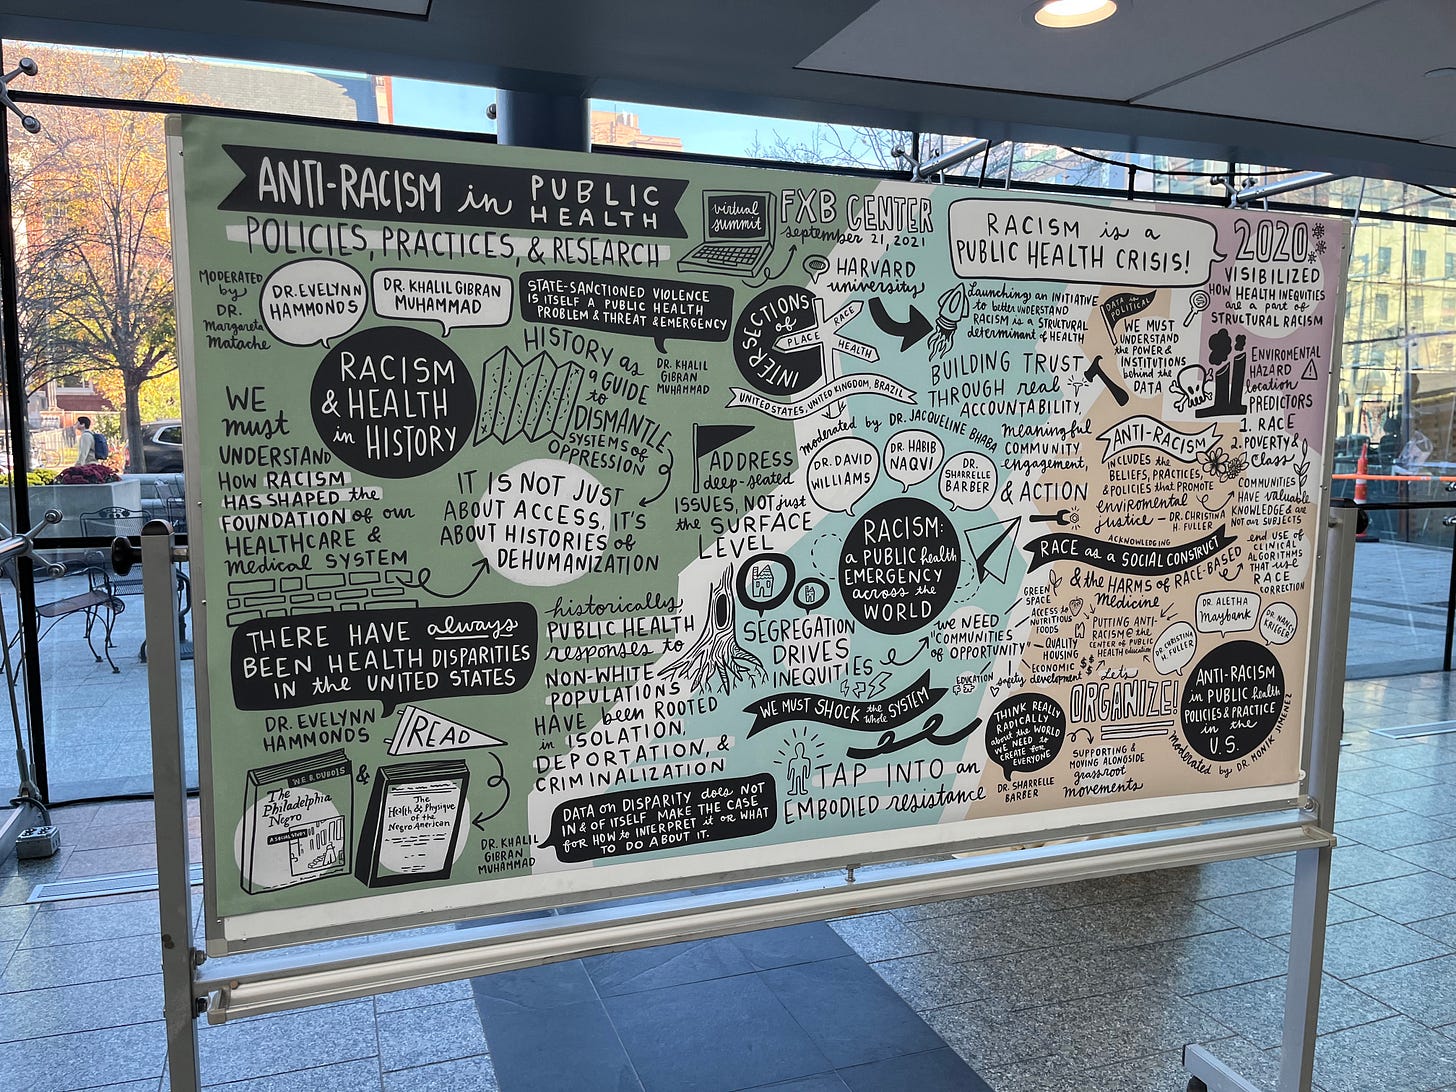 ANTI-RACISM in PUBLIC HEALTH
POLICIES, PRACTICES, & RESEARCH
virtual
summit
FXB CENTER
september 21, 2021
HARVARD
university
MODERATED
by
DR.
Margareta
Matache
DR. EVELYNN
HAMMONDS
DR. KHALIL GIBRAN
MUHAMMAD
RACISM
& HEALTH
in HISTORY
STATE-SANCTIONED VIOLENCE
IS ITSELF A PUBLIC HEALTH
PROBLEM & THREAT & EMERGENCY
DR. KHALIL
GIBRAN
MUHAMMAD
HISTORY as
a GUIDE
to
DISMANTLE
SYSTEMS of
OPPRESSION
WE
must
UNDERSTAND
HOW RACISM
HAS SHAPED the
FOUNDATION of our
HEALTHCARE &
medical SYSTEM
IT IS NOT JUST
ABOUT ACCESS, IT'S
ABOUT HISTORIES of
DEHUMANIZATION
ADDRESS
deep-seated
ISSUES, NOT just
the SURFACE
LEVEL
THERE HAVE always
BEEN HEALTH DISPARITIES
IN the UNITED STATES
DR. EVELYNN
HAMMONDS
READ
W.E.B. DUBOIS
The
Philadelphia
Negro
A SOCIAL STUDY
&
The
Health & Physique
of the
Negro American
DR. KHALIL
GIBRAN
MUHAMMAD
historically
PUBLIC HEALTH
responses to
NON-WHITE
POPULATIONS
HAVE been ROOTED
in ISOLATION,
DEPORTATION, &
CRIMINALIZATION
DATA on DISPARITY does NOT
IN & OF ITSELF MAKE THE CASE
for HOW to INTERPRET it OR WHAT
TO DO ABOUT IT.
INTERSECTIONS of
PLACE
RACE
HEALTH
UNITED STATES, UNITED KINGDOM, BRAZIL
moderated by DR. JACQUELINE BHABHA
DR. DAVID
WILLIAMS
DR. HABIB
NAQVI
DR.
SHARRELLE
BARBER
RACISM:
a PUBLIC health
EMERGENCY
across the
WORLD
SEGREGATION
DRIVES
INEQUITIES
WE NEED
"COMMUNITIES
of OPPORTUNITY"
GREEN
SPACE
ACCESS to
NUTRITIOUS
FOODS
QUALITY
HOUSING
ECONOMIC $$
development
safety
EDUCATION
WE MUST SHOCK the whole SYSTEM
TAP INTO an
EMBODIED resistance
THINK REALLY
RADICALLY
about the WORLD
WE NEED to
CREATE FOR
EVERYONE
DR. SHARRELLE
BARBER
RACISM is a
PUBLIC HEALTH CRISIS!
Launching an INITIATIVE
to better UNDERSTAND
RACISM as a STRUCTURAL
determinant of HEALTH
BUILDING TRUST
THROUGH real
ACCOUNTABILITY,
meaningful
COMMUNITY
engagement,
& ACTION
DATA is
POLITICAL
WE MUST
UNDERSTAND
the POWER &
INSTITUTIONS
behind the
DATA
2020
VISIBILIZED
HOW HEALTH INEQUITIES
are a part of
STRUCTURAL RACISM
ENVIROMENTAL
HAZARD
location
PREDICTORS
1. RACE
2. POVERTY &
Class
ANTI-RACISM
INCLUDES the
BELIEFS, PRACTICES,
& POLICIES that PROMOTE
enviromental
justice — DR. CHRISTINA
H. FULLER
COMMUNITIES
HAVE valuable
KNOWLEDGE & are
NOT our SUBJECTS
ACKNOWLEDGING
RACE as a SOCIAL CONSTRUCT
& the HARMS of RACE-BASED
Medicine
end USE of
CLINICAL
ALGORITHMS
THAT use
RACE
CORRECTION
PUTTING ANTI-
RACISM @ the
CENTER of PUBLIC
HEALTH education
Let's
ORGANIZE!
SUPPORTING &
MOVING ALONGSIDE
grassroot
movements
DR. CHRISTINA
H. FULLER
DR. ALETHA
Maybank
DR. NANCY
KRIEGER
ANTI-RACISM
in PUBLIC health
POLICIES & PRACTICE
in the
U.S.
moderated by DR. MONIK JIMÉNEZ